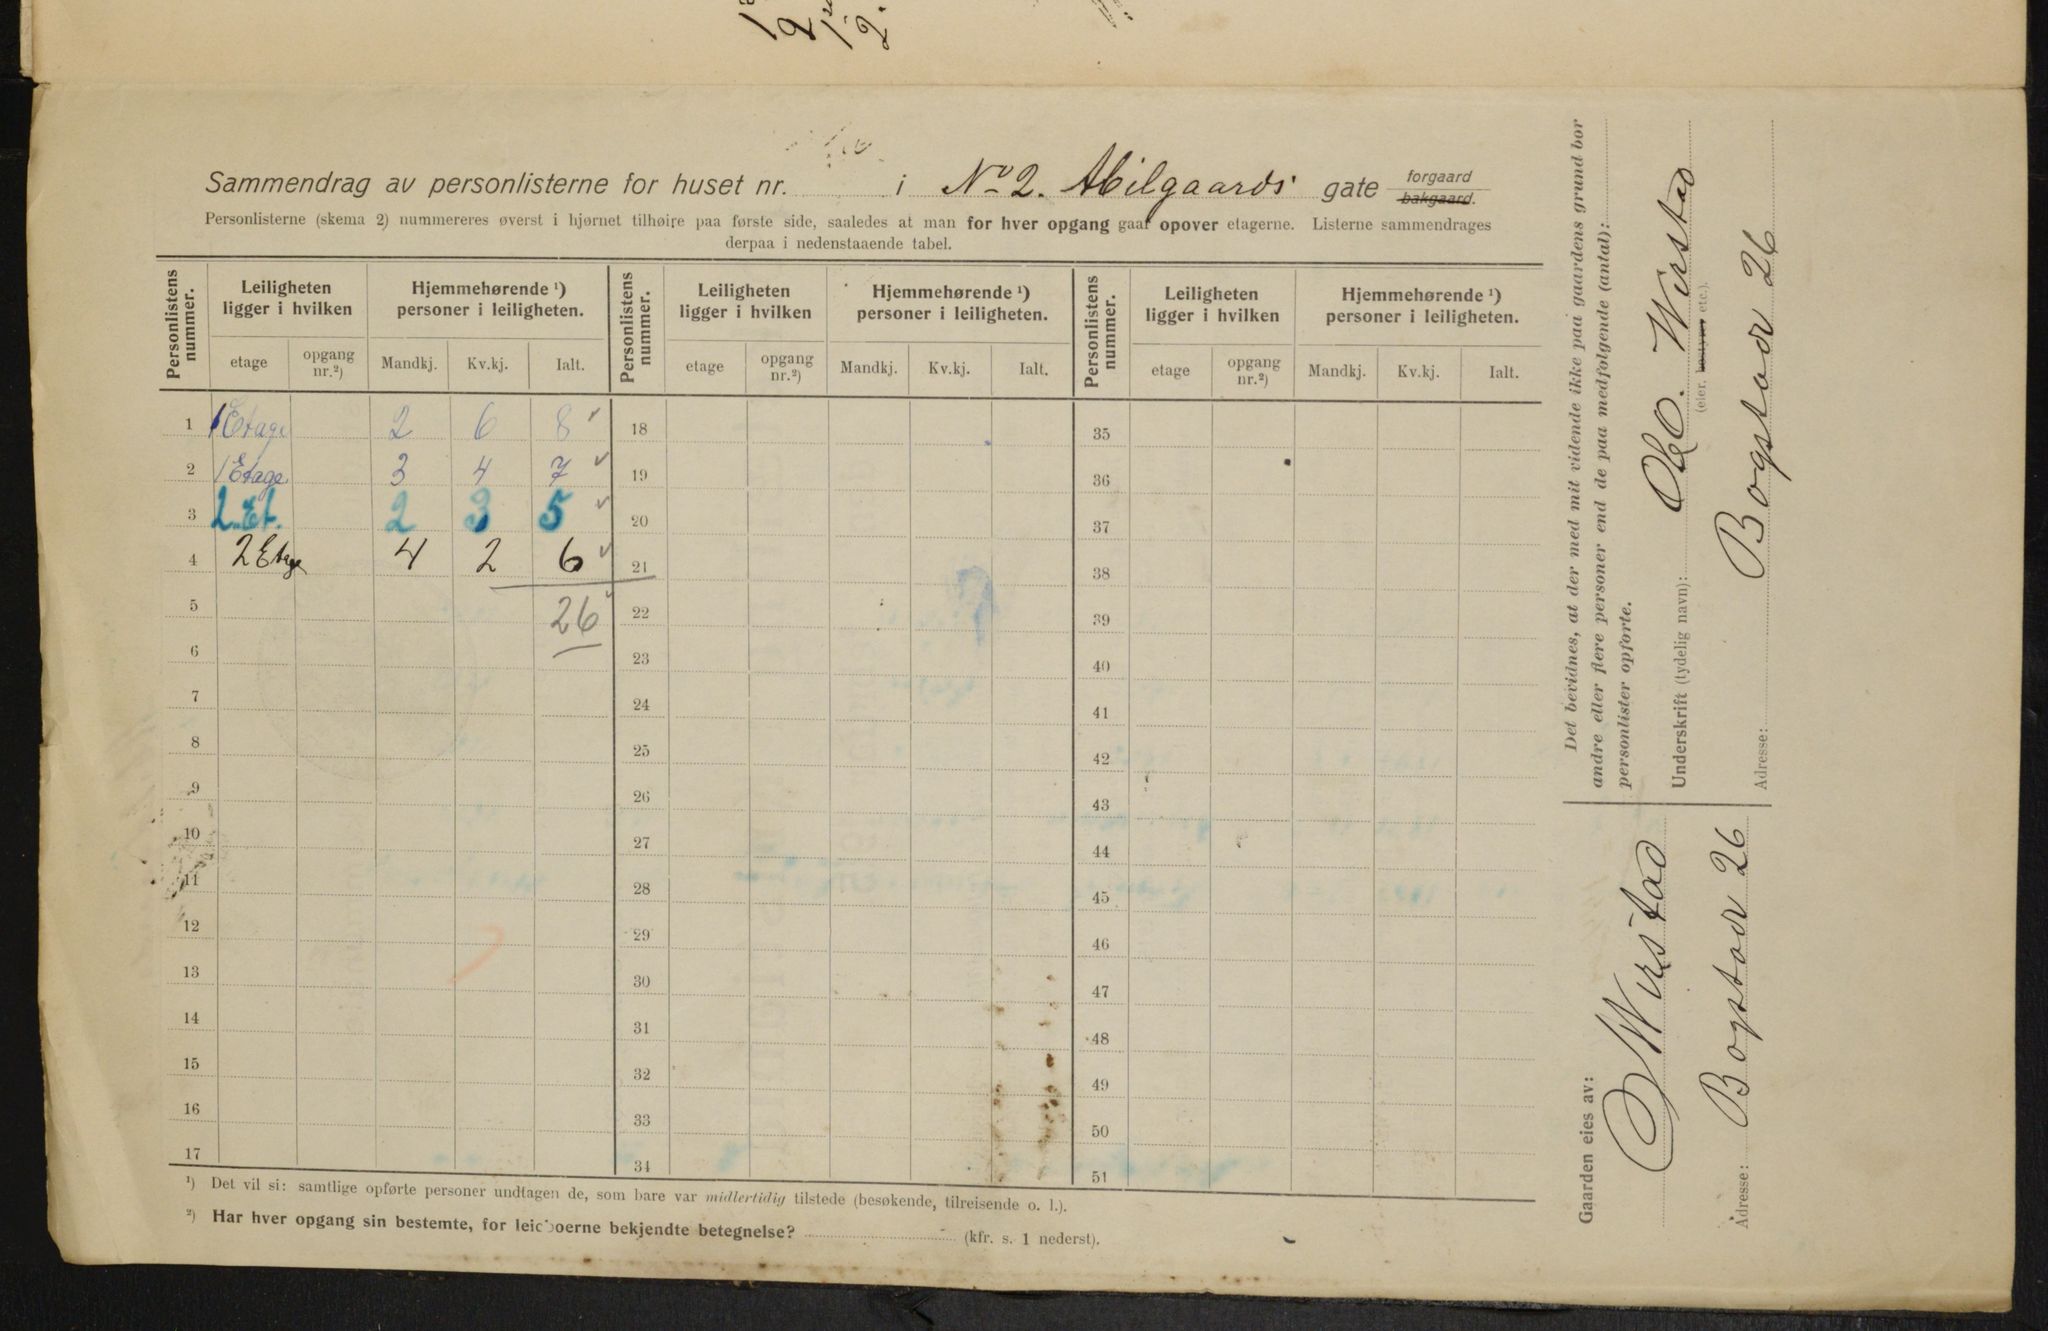 Sammendrag av personlisterne for huset nr. i No 2. Abilgaards gate forgaard bakgaard.
Personlisterne (skema 2) nummereres øverst i hjørnet tilhøire paa første side, saaledes at man for hver opgang gaar opover etagerne. Listerne sammendrages
derpaa i nedenstaaende tabel.
Personlistens nummer. Leiligheten ligger i hvilken Hjemmehørende ¹) personer i leiligheten. Personlistens nummer. Leiligheten ligger i hvilken Hjemmehørende ¹) personer i leiligheten. Personlistens nummer. Leiligheten ligger i hvilken Hjemmehørende ¹) personer i leiligheten.
etage opgang nr.²) Mandkj. Kv.kj. Ialt. etage opgang nr.²) Mandkj. Kv.kj. Ialt. etage opgang nr.²) Mandkj. Kv.kj. Ialt.
1 1 Etage 2 6 8 18 35
2 1 Etage 3 4 7 19 36
3 2. Et. 2 3 5 20 37
4 2 Etage 4 2 6 21 38
5 26 22 39
6 23 40
7 24 41
8 25 42
9 26 43
10 27 44
11 28 45
12 29 46
13 30 47
14 31 48
15 32 49
16 33 50
17 34 51
¹) Det vil si: samtlige opførte personer undtagen de, som bare var midlertidig tilstede (besøkende, tilreisende o. l.).
²) Har hver opgang sin bestemte, for leieboerne bekjendte betegnelse? (kfr. s. 1 nederst).
Det bevidnes, at der med mit vidende ikke paa gaardens grund bor
andre eller flere personer end de paa medfølgende (antal):
personlister opførte.
Underskrift (tydelig navn): O. Wirstad
(eier, bestyrer etc.).
Adresse: Bogstadv 26
Gaarden eies av:
Wirstad
Adresse: Bogstadv 26